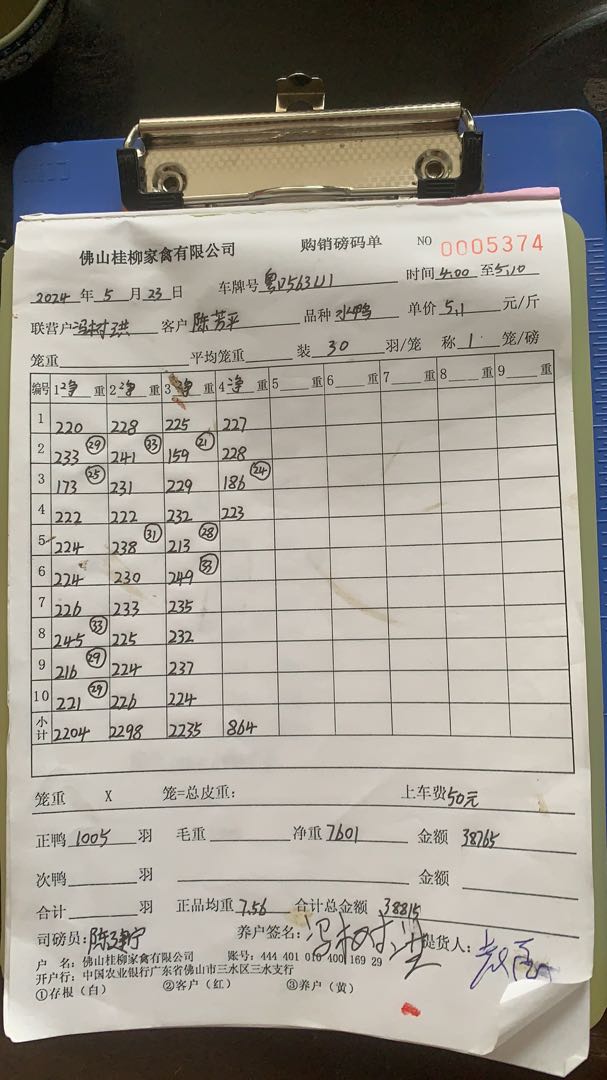 佛山桂柳家禽有限公司 购销磅码单 NO 0005374
2024 年 5 月 23 日 车牌号 时间 4.00 至 5.10
联营户 冯树洪 客户 陈芳平 品种 水鸭 单价 5.1 元/斤
笼重 平均笼重 装 30 羽/笼 称 1 笼/磅
编号 1 净 重 2 净 重 3 净 重 4 净 重 5 重 6 重 7 重 8 重 9 重
1 220 228 225 227
2 233 29 241 33 159 21 228
3 173 25 231 229 186 24
4 222 222 232 223
5 224 238 31 213 28
6 224 230 249 33
7 226 233 235
8 245 33 225 232
9 216 29 224 237
10 221 29 226 224
小计 2204 2298 2235 864
笼重 X 笼=总皮重： 上车费 50元
正鸭 1005 羽 毛重 净重 7601 金额 38765
次鸭 羽 金额
合计 羽 正品均重 7.56 合计总金额 38815
司磅员： 养户签名： 提货人：
户 名：佛山桂柳家禽有限公司 账号：444 401 010 400 169 29
开户行：中国农业银行广东省佛山市三水区三水支行
①存根（白） ②客户（红） ③养户（黄）